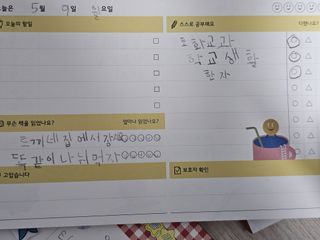 오늘은 5월 9일 월요일
오늘의 할일
스스로 공부해요
다했나요?
통화교과
학교생활
한자
무슨 책을 읽었나요?
얼마나 읽었나요?
토끼네 집에서
똑같이 나눠먹자
고맙습니다
보호자 확인